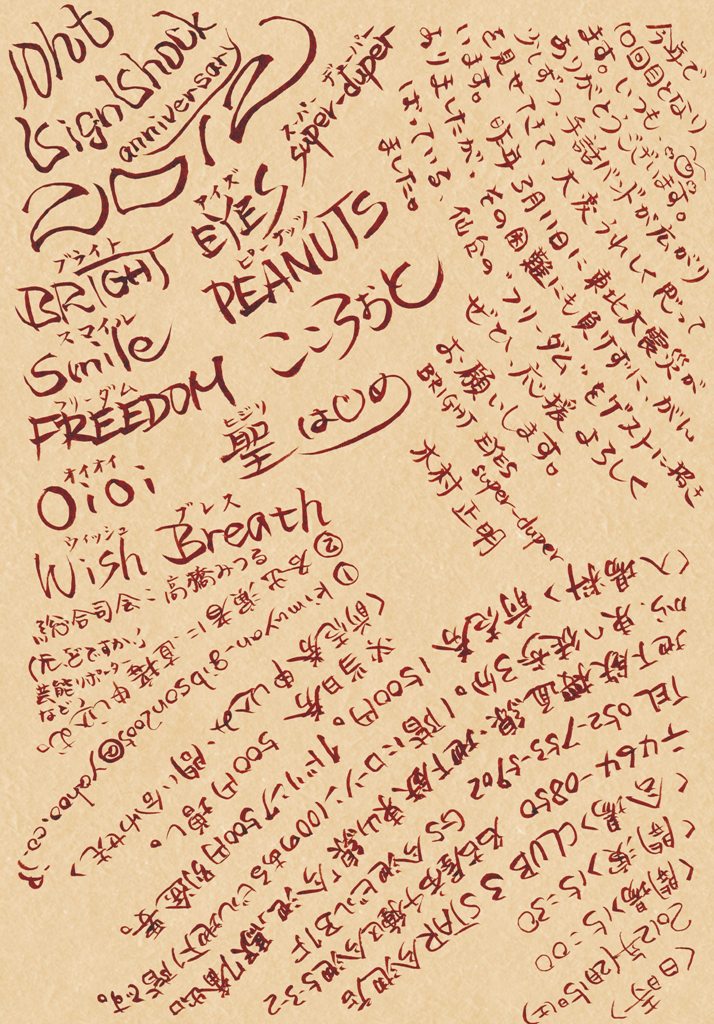 10ht
Sign Shock
anniversary
2012
スーパー デューパー
super-duper
アイズ
EYES
ブライト
BRIGHT
ピーナッツ
PEANUTS
スマイル
Smile
こころおと
フリーダム
FREEDOM
ヒジリ
聖 はじめ
オイオイ
OiOi
ウィッシュ
Wish
ブレス
Breath
総合司会:高橋みつる
(元、どですか!
芸能リポーター
など)
今年で
10回目となり
ます。いつも、
ありがとうございます。
少しずつ、手話バンドが広がり
を見せてきて、大変うれしく思って
います。昨年3月11日に東北大震災が
ありましたが、その困難にも負けずに、がん
ばっている、仙台の"フリーダム"をゲストに招き
ました。
ぜひ、応援よろしく
お願いします。
BRIGHT EYES
super-duper
木村 正明
<日時>
2012年12月15日(土)
<開場>15:00
<開演>15:30
<会場>CLUB 3STAR今池
〒464-0850 名古屋市千種区今池5-3-2
GS今池ビルB1F
TEL 052-753-5902
地下鉄桜通線・地下鉄東山線「今池」駅7番出口
から、東へ徒歩3分。1階にローソン100のあるビル地下1階です。
<入場料> 前売券 1500円。1ドリンク500円別途要。
※当日券 500円増し。
<前売券 申し込み・問い合わせ先>
① kimuyan-gibson2005@yahoo.co.jp
② 各出演者に直接申し込む。